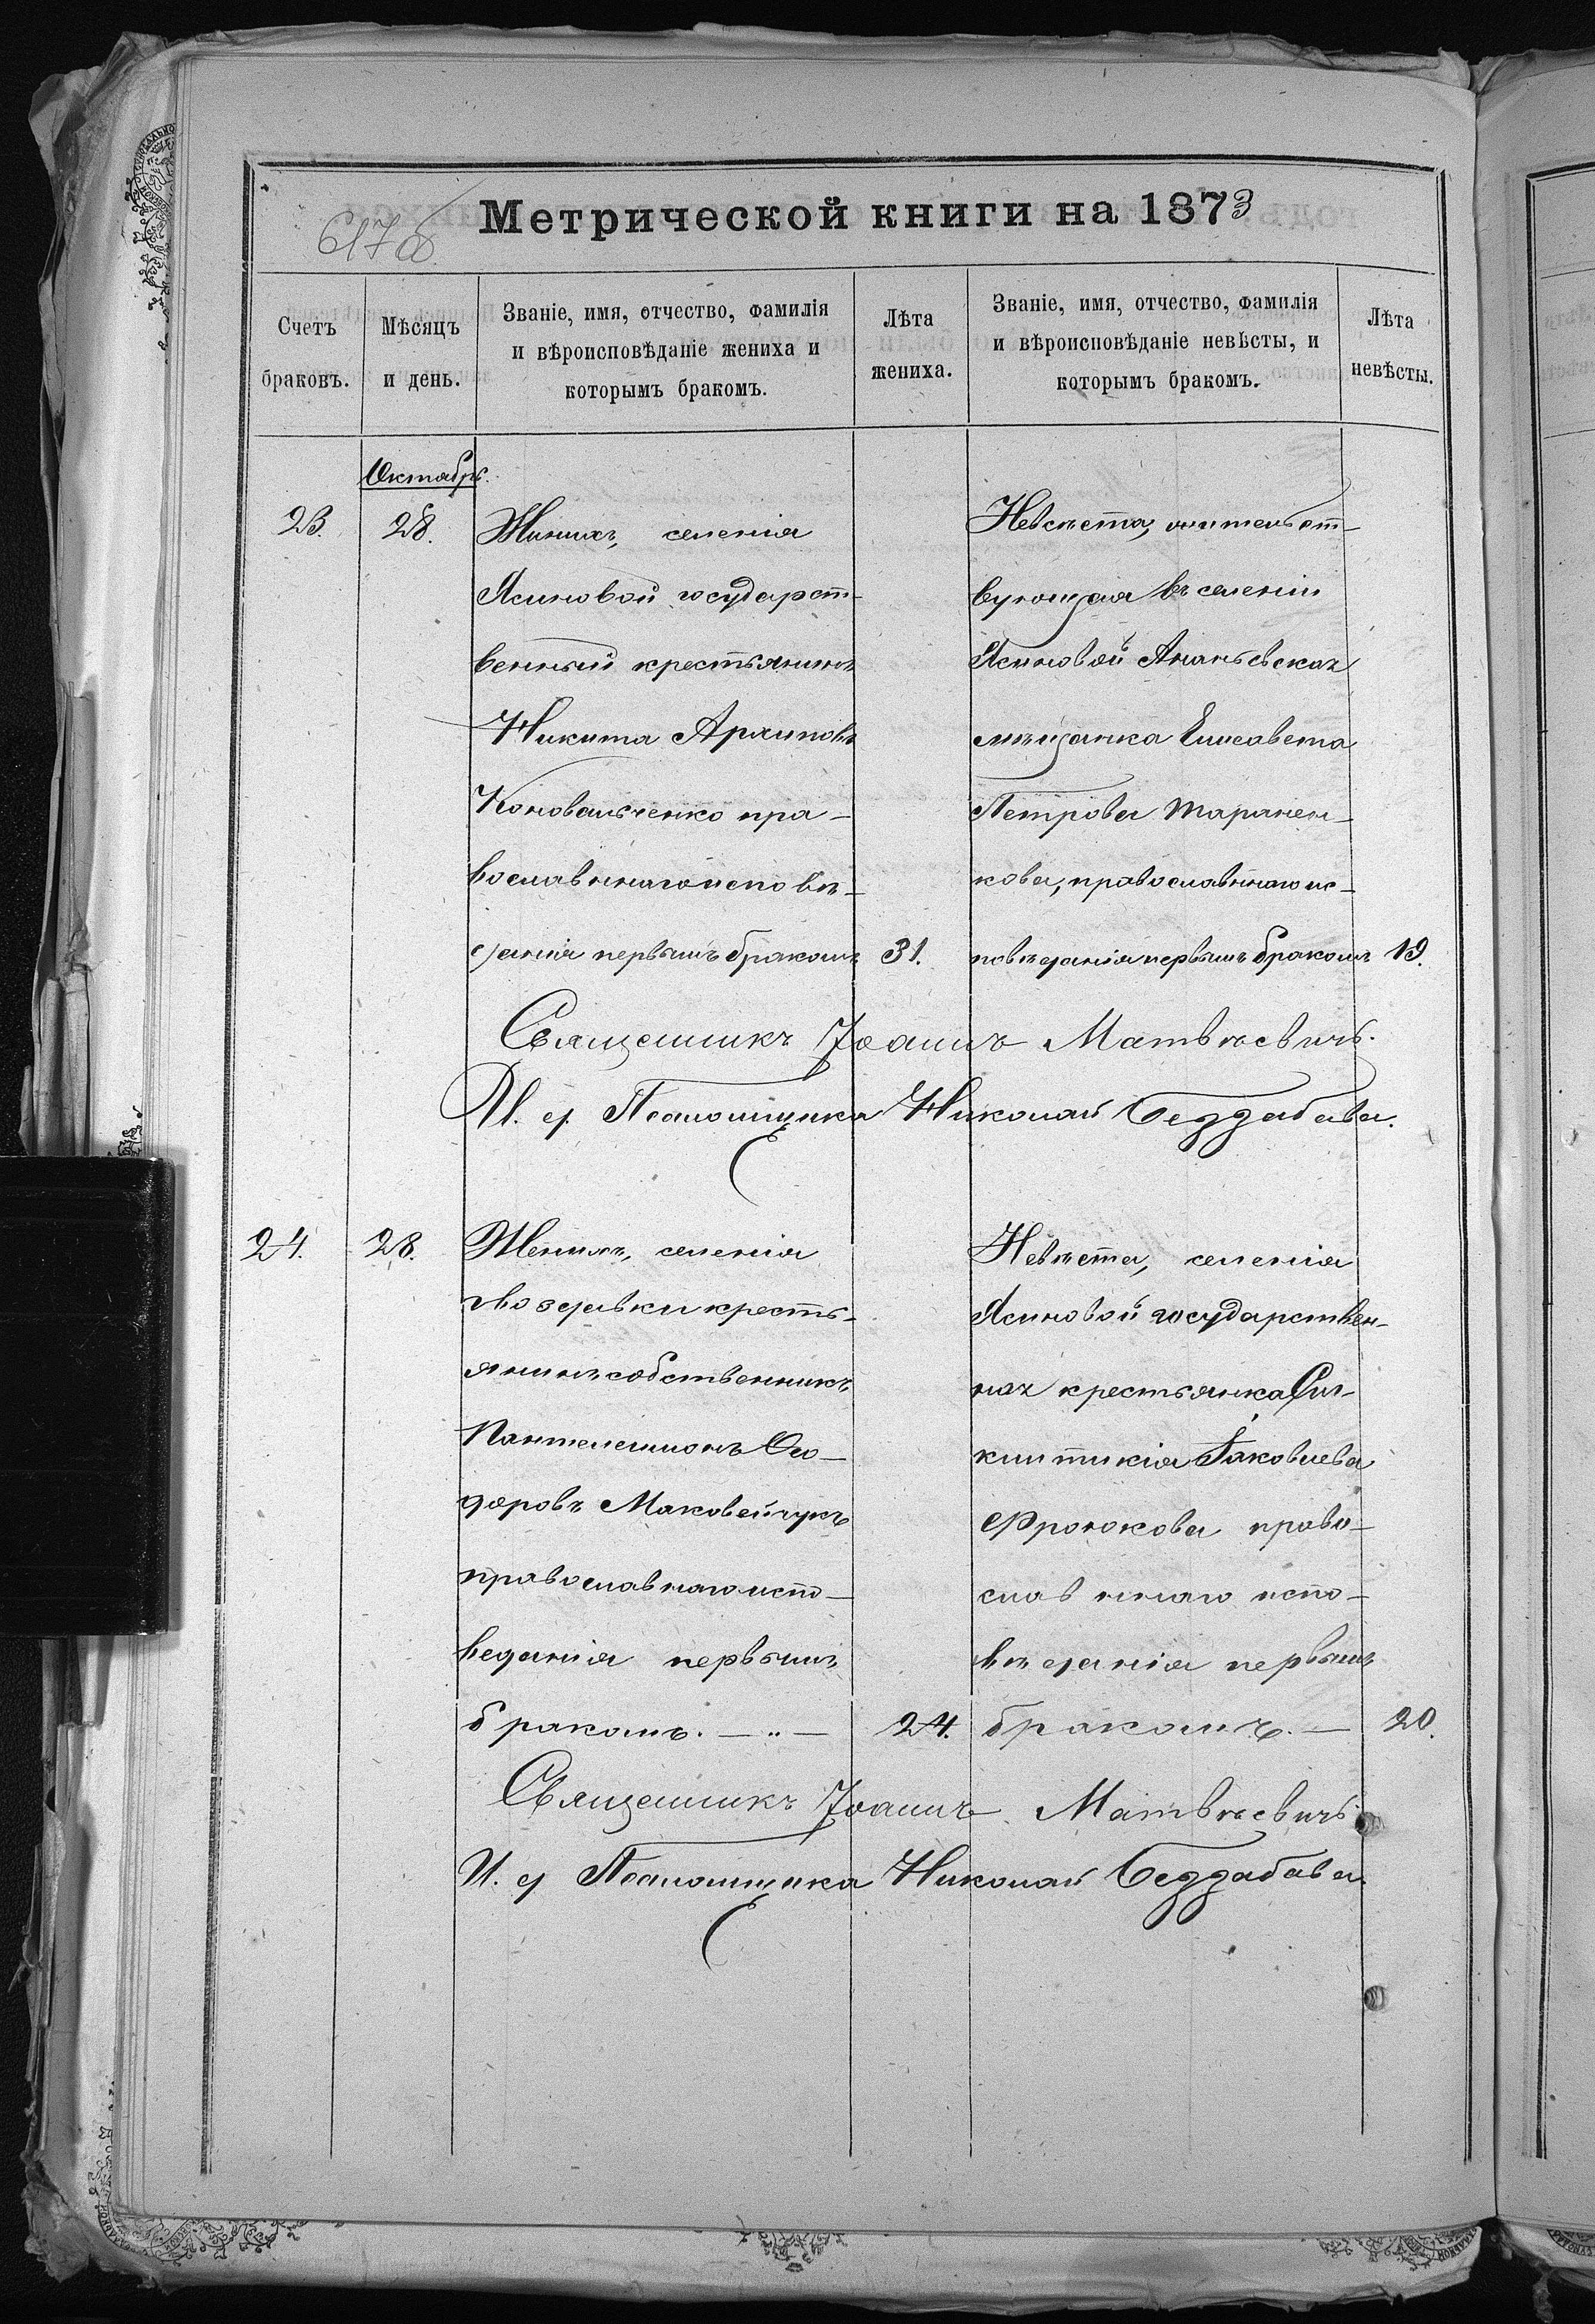 Метрической книги на 1873
617 об.
Счетъ браковъ.
Мѣсяцъ и день.
Званіе, имя, отчество, фамилія
и вѣроисповѣданіе жениха и
которымъ бракомъ.
Лѣта жениха.
Званіе, имя, отчество, фамилія
и вѣроисповѣданіе невѣсты, и
которымъ бракомъ.
Лѣта невѣсты.
Октябрь.
23.
28.
Жинихъ, селенія
Ясиновой государст-
венный крестьянинъ
Никита Архиповъ
Коновальченко пра-
вославннаго исповѣ-
данія первымъ бракомъ
31.
Невѣста, жительст-
вующая въ селеніи
Ясиновой Ананьевская
мѣщанка Елисавета
Петрова Таранен-
кова, православннаго ис-
повѣданія первымъ бракомъ
19.
Священникъ Іоаннъ Матвѣевичъ.
И. д. Псаломщика Николай Беззабава.
24.
28.
Женихъ, селенія
Гвоздавки кресть-
янинъ собственникъ
Пантелеимонъ Ѳео-
доровъ Маковейчукъ
православнаго испо-
веданія первымъ
бракомъ. — „ —
24.
Невѣста, селенія
Ясиновой государствен-
ная крестьянка Син-
клитикія Іаковлева
Фронокова право-
славннаго испо-
вѣданія первымъ
бракомъ. —
20.
Священникъ Іоаннъ Матвѣевичъ
И. д Псаломщика Николай Беззабава.